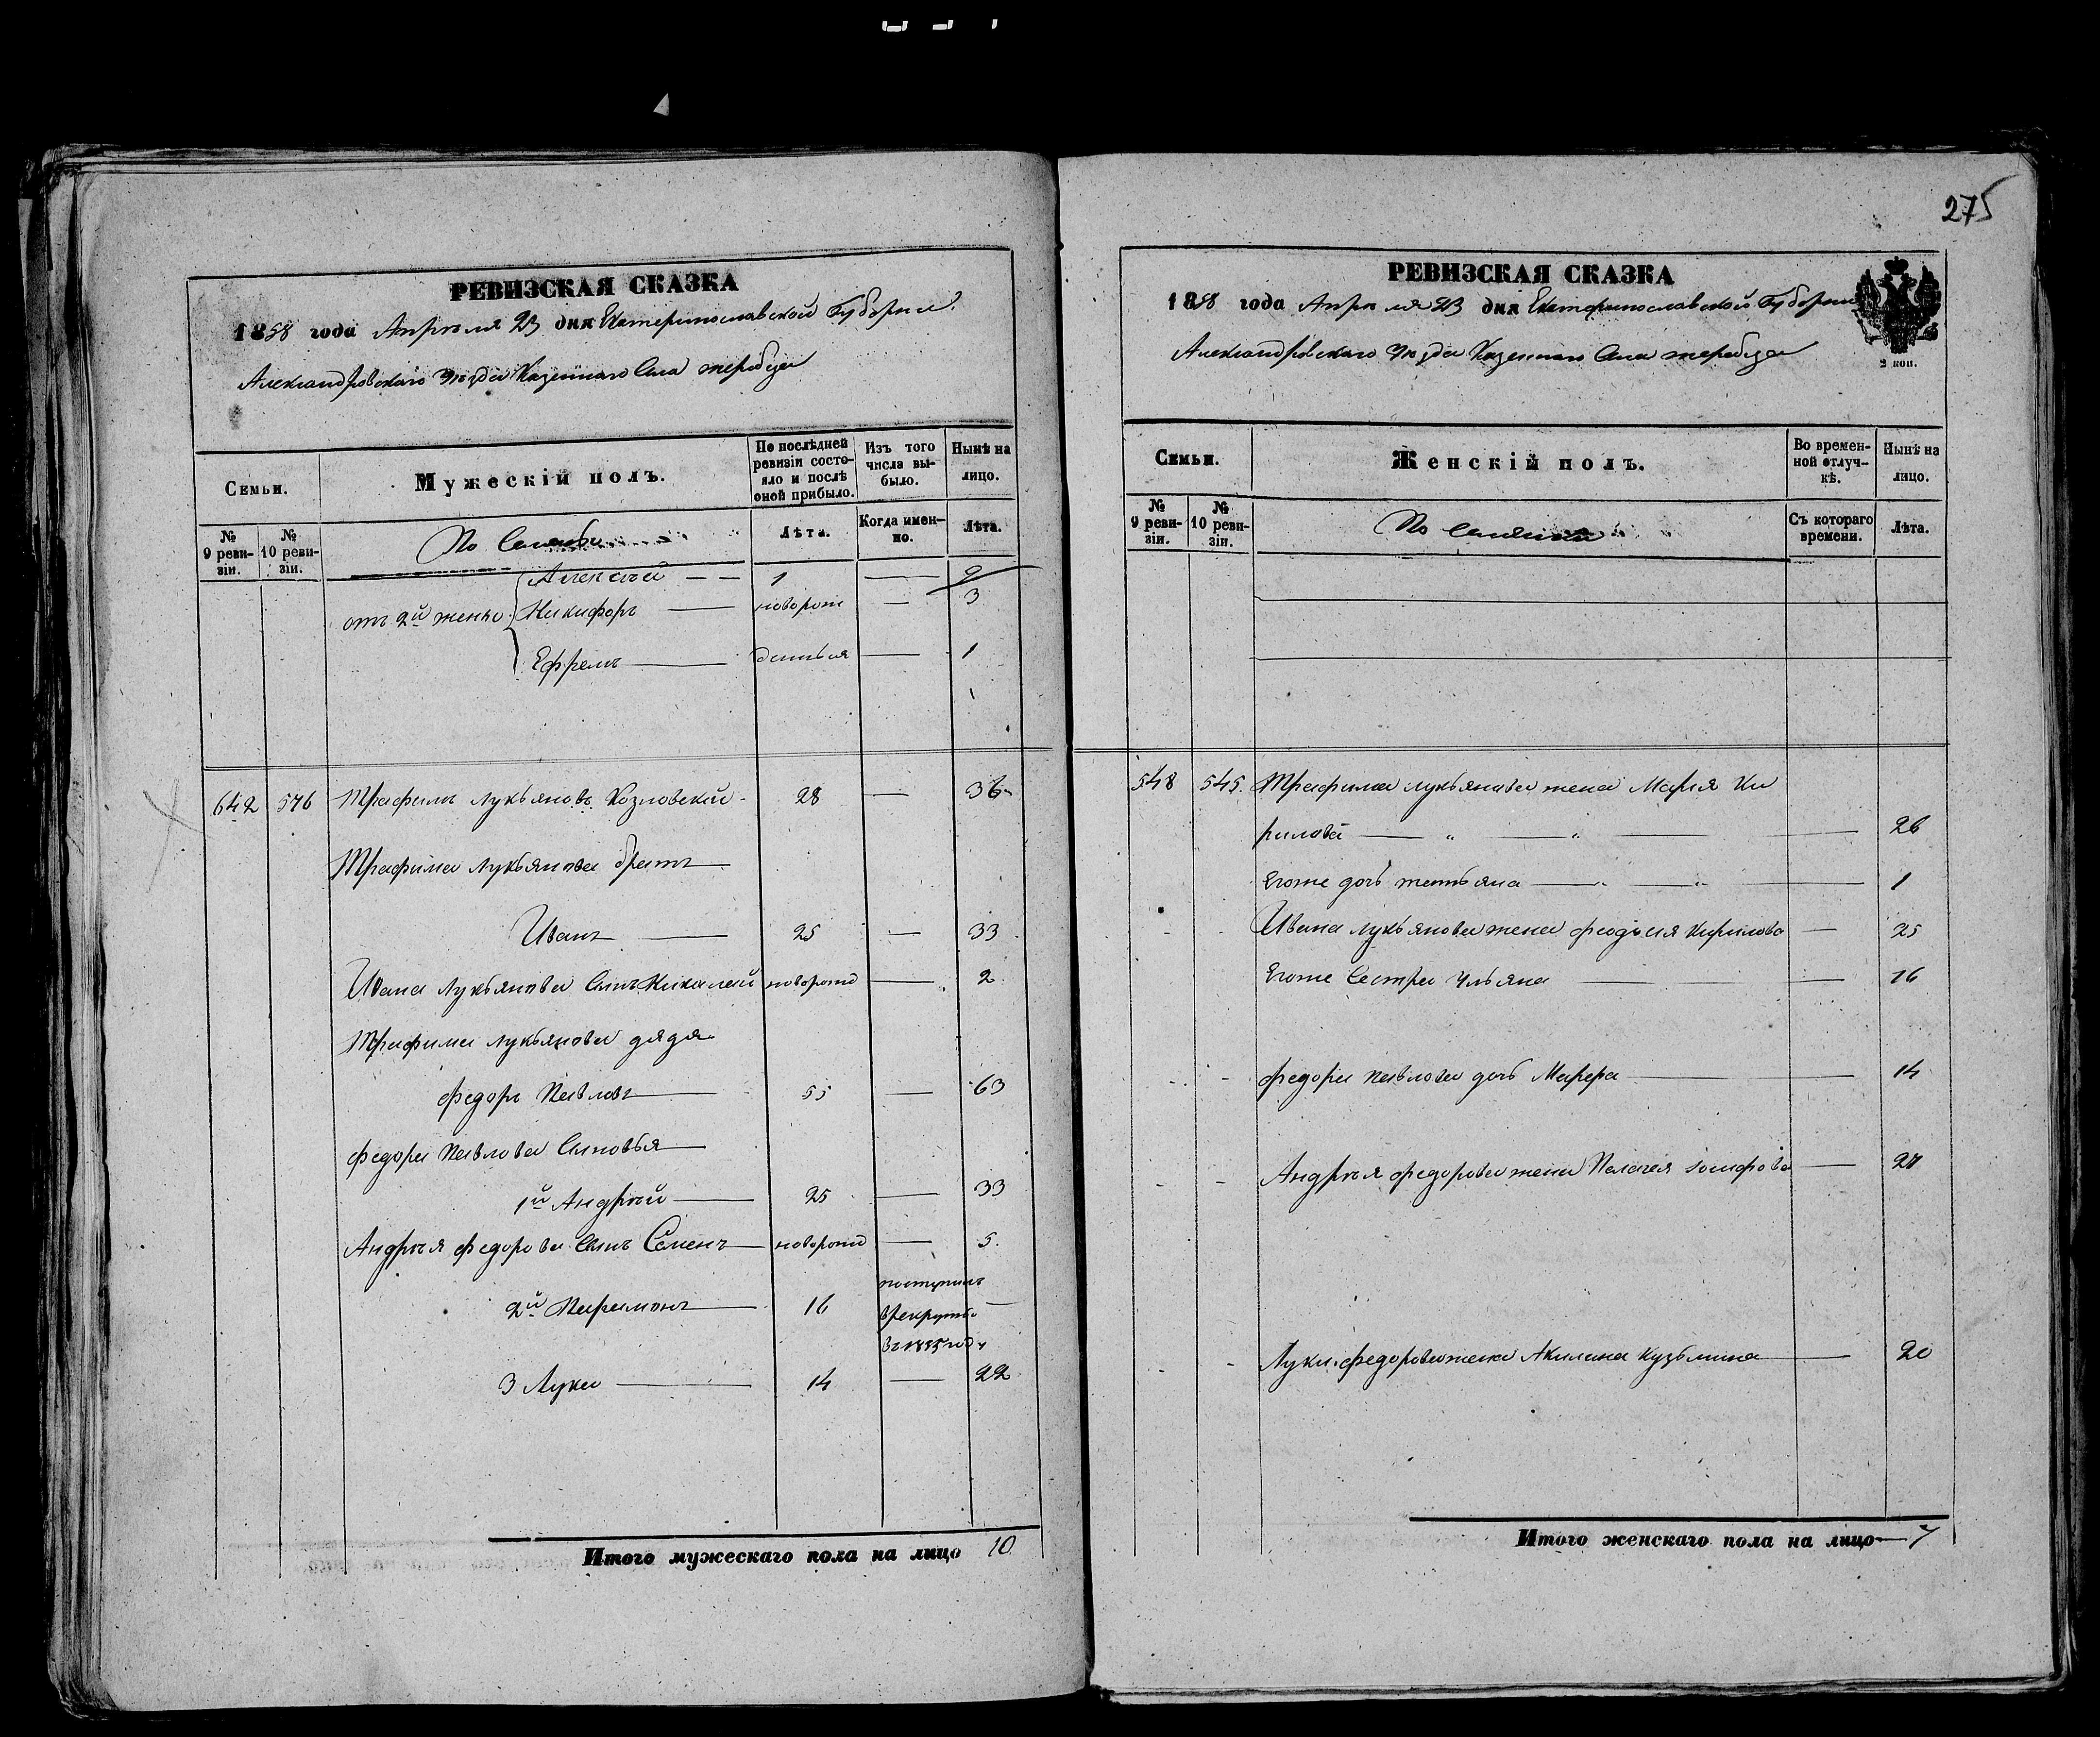 275
РЕВИЗСКАЯ СКАЗКА
1858 года Апреля 23 дня Екатеринославской Губернии
Александровскаго Уезда Казеннаго Села
Семьи.
Мужескій полъ.
По послѣдней ревизіи состояло и послѣ оной прибыло.
Изъ того числа выбыло.
Нынѣ на лицо.
№ 9 ревизіи.
№ 10 ревизіи.
Лѣта.
Когда именно.
Лѣта.
Алексей — — 1 — 9
отъ 2й жены Никифоръ — новорож — 3
Ефремъ — 1
642 576 Трафимъ Лукьяновъ Козловский - 28 — 36
Трафима Лукьянова братъ —
Иванъ — 25 — 33
Ивана Лукьянова сынъ Николай новорожд — 2
Трафима Лукьянова дядя
Федоръ Павловъ — 55 — 63
Федора Павлова Сыновья —
1й Андрей — 25 — 33
Андрея Федорова Сынъ Семенъ — новорожд — 5
2й Парамонъ — 16 поступилъ —
в рекруты
въ 1855 году
3 Лука — 14 — 22
Итого мужескаго пола на лицо 10
РЕВИЗСКАЯ СКАЗКА
1858 года Апреля 23 дня Екатеринославской Губернии
Александровскаго Уезда Казеннаго Села
2 коп.
Семьи.
Женскій полъ.
Во временной отлучкѣ.
Нынѣ на лицо.
№ 9 ревизіи.
№ 10 ревизіи.
Съ котораго времени.
Лѣта.
548 545. Трафима Лукьянова жена Мария Ки
рилова — „ — „ — — 26
Егоже дочь Татьяна — „ — „ — 1
Ивана Лукьянова жена Феодосия Кирилова — 25
Егоже Сестра Ульяна — — — 16
Федора Павлова дочь Марфа — — 14
Андрея Федорова жена Пелагея — 27
Луки Федорова жена Акилина Кузьмина — 20
Итого женскаго пола на лицо — 7